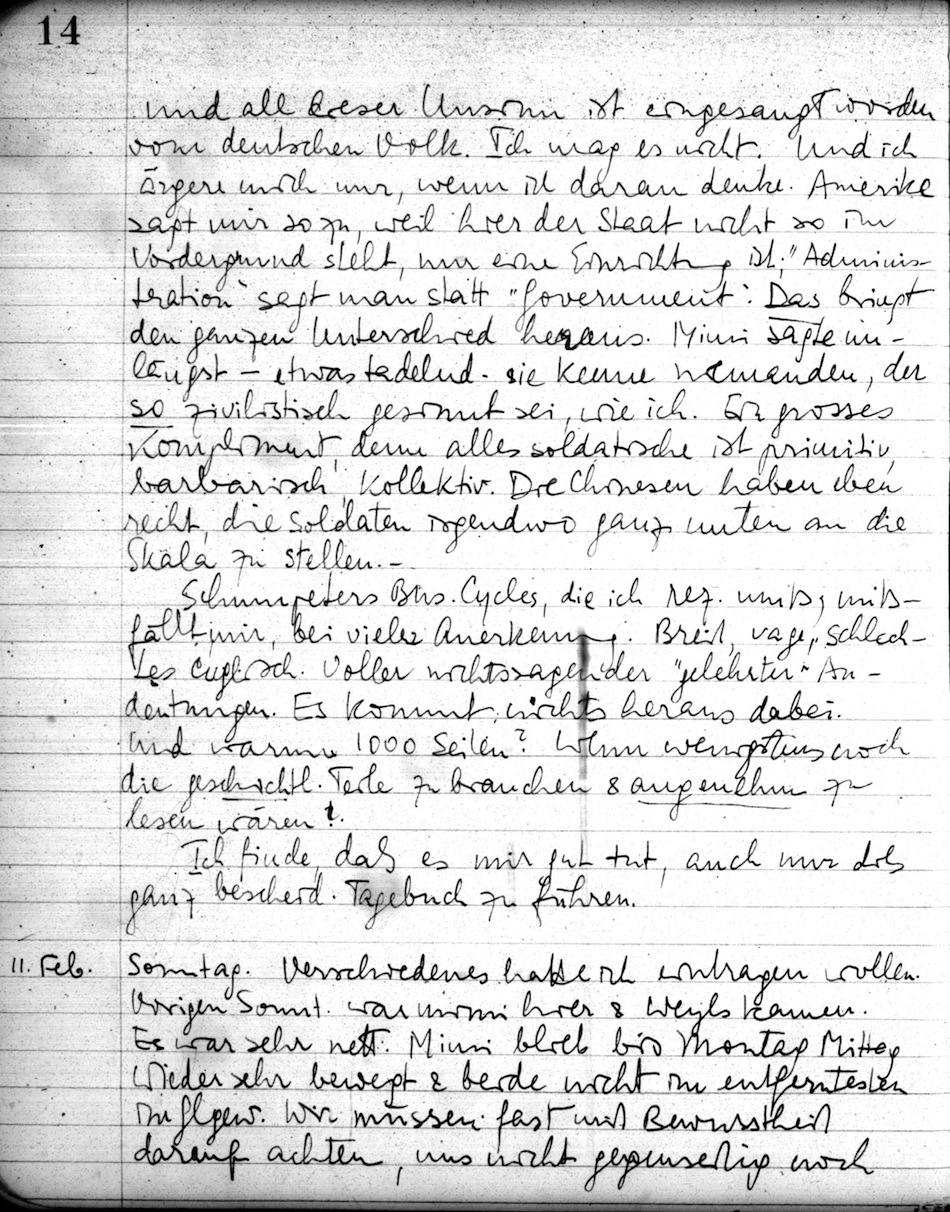 14
und all dieser Unsinn ist eingesaugt worden
vom deutschen Volk. Ich mag es nicht. Und ich
ärgere mich nur, wenn ich daran denke. Amerika
sagt mir so zu, weil hier der Staat nicht so im
Vordergrund steht, nur eine Einrichtung ist; "Adminis-
tration" sagt man statt "Government". Das bringt
den ganzen Unterschied heraus. Mimi sagte un-
längst – etwas tadelnd - sie kenne niemanden, der
so zivilistisch gesinnt sei, wie ich. Ein grosses
Kompliment, denn alles soldatische ist primitiv,
barbarisch, kollektiv. Die Chinesen haben eben
recht, die Soldaten irgendwo ganz unten an die
Skala zu stellen. –
Schumpeters Bus. Cycles, die ich rez. muß, miß-
fällt mir, bei vieler Anerkennung. Breit, vage, schlech-
tes Englisch. Voller nichtssagender "gelehrter" An-
deutungen. Es kommt nichts heraus dabei.
Und warum 1000 Seiten? Wenn wenigstens noch
die geschichtl. Teile zu brauchen & angenehm zu
lesen wären!
Ich finde, daß es mir gut tut, auch nur dies
ganz bescheid. Tagebuch zu führen.
11. Feb. Sonntag. Verschiedenes hatte ich eintragen wollen.
Vorigen Sonnt. war Mimi hier & Weyls kamen.
Es war sehr nett. Mimi blieb bis Montag Mittag
Wieder sehr bewegt & beide nicht im entferntesten
im Glgew. Wir müssen fast mit Bewusstheit
darauf achten, uns nicht gegenseitig noch